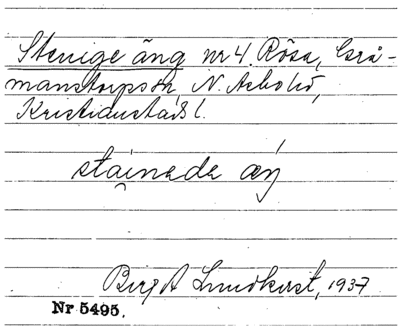 Stenige äng nr 4. Rösa, Grå-
manstorps sn, N. Åsbo hd,
Kristianstads l.
stáinada æŋ
Birgit Lundkvist, 1937
Nr 5495.